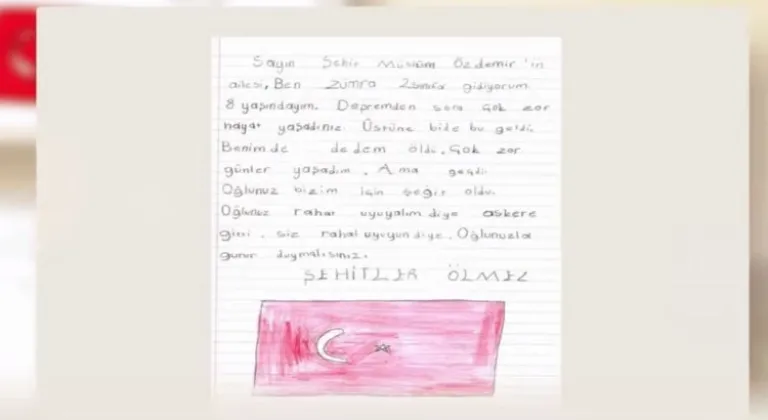 Sayın Şehit Müslüm Özdemir'in
ailesi, Ben Zümra 2.sınıfa gidiyorum
8 yaşındayım. Depremden sora çok zor
hayat yaşadınız Üstüne bide bu geldi.
Benimde dedem öldü. Çok zor
günler yaşadım. Ama geçdi.
Oğlunuz bizim için şeğit oldu.
Oğlunuz rahat uyuyalım diye askere
gitti. siz rahat uyuyun diye. Oğlunuzla
gurur duymalısınız.
ŞEHİTLER ÖLMEZ